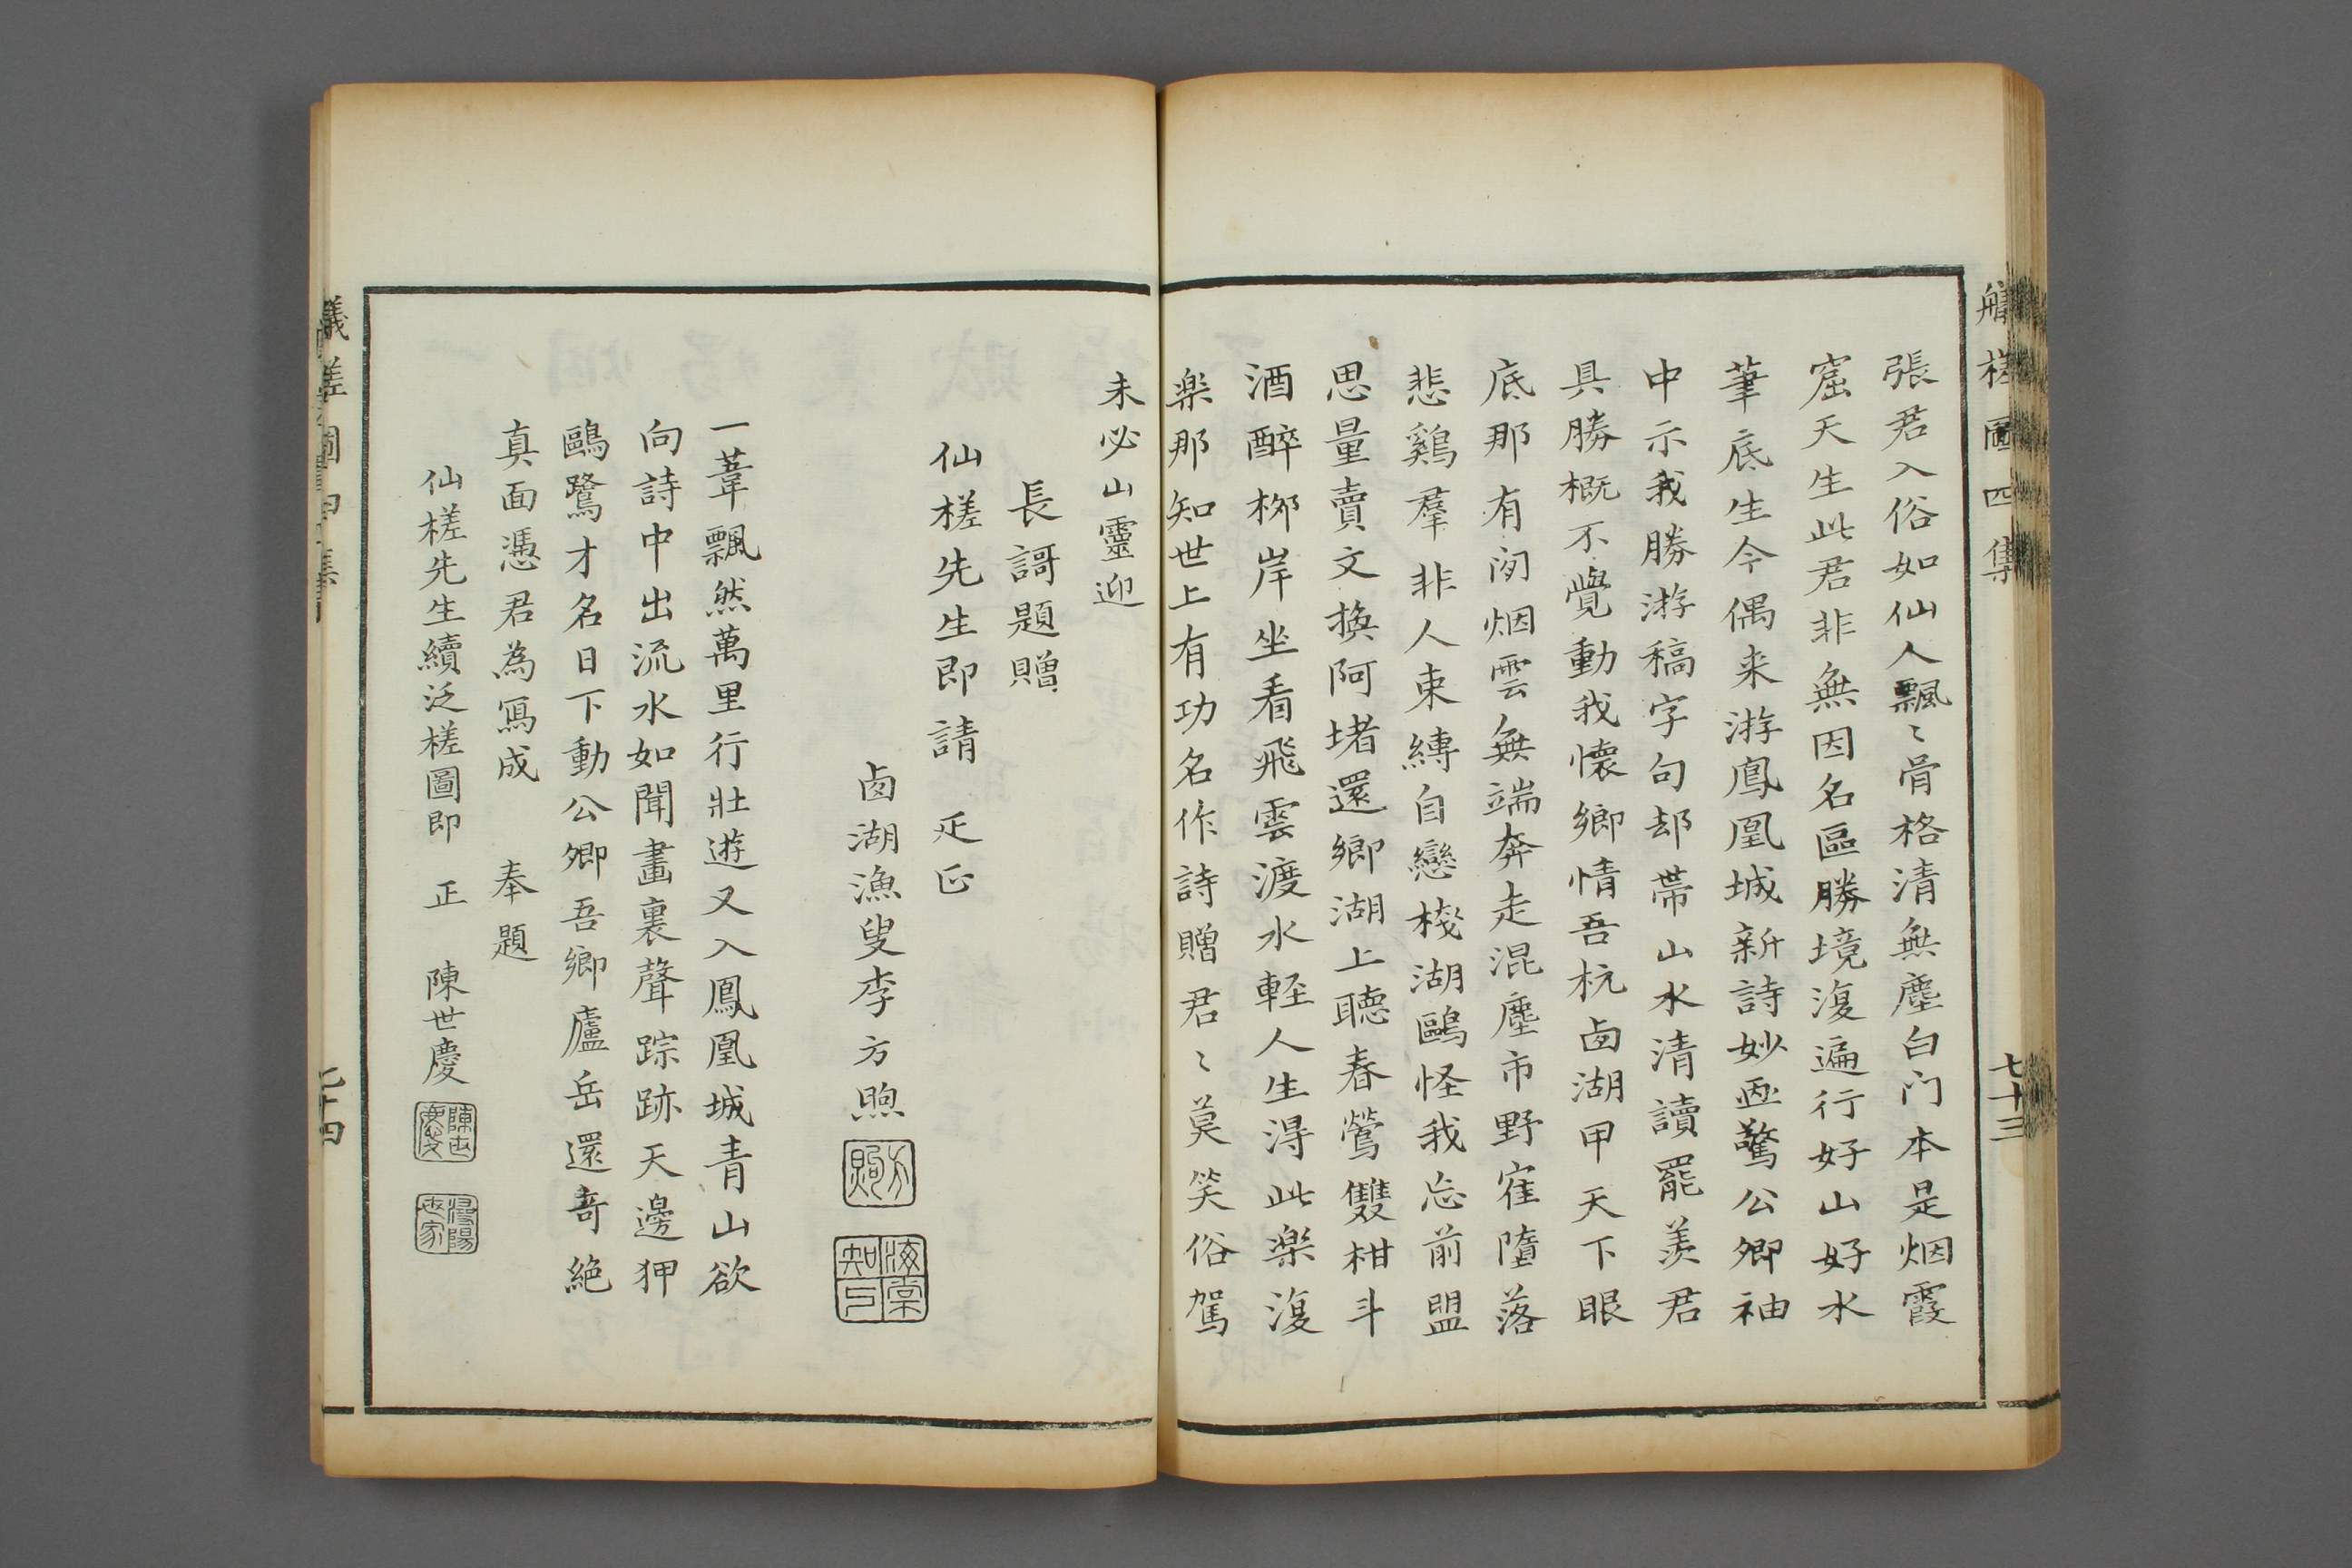 槎圖四集
七十三
張君入俗如仙人飄〻骨格清無塵白门本是烟霞
窟天生此君非無因名區勝境復遍行好山好水
筆底生今偶来游鳳凰城新詩妙画驚公卿袖
中示我勝游稿字句却帶山水清讀罷羨君
具勝概不覺動我懷鄉情吾杭卤湖甲天下眼
底那有闲烟雲無端奔走混塵市野寉墮落
悲鷄羣非人束縛自戀棧湖鷗怪我忘前盟
思量賣文换阿堵還鄉湖上聽春鶯雙柑斗
酒醉桞岸坐看飛雲渡水軽人生得此楽復
楽那知世上有功名作詩贈君〻莫笑俗駕
未必山靈迎
長謌題贈
仙槎先生即請 疋正
卤湖漁叟李方煦
方煦
海棠知己
一葦飄然萬里行壯遊又入鳳凰城青山欲
向詩中出流水如聞畫裏聲踪跡天邊狎
鷗鷺才名日下動公卿吾鄉廬岳還竒絕
真面憑君為寫成 奉題
仙槎先生續泛槎圖即 正 陳世慶
陳世慶
潯陽世家
槎圖四集
七十四